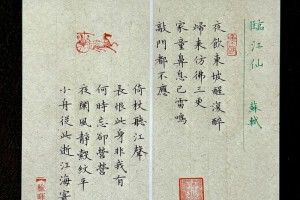 臨江仙 蘇軾
夜飲東坡醒復醉
歸來仿佛三更
家童鼻息已雷鳴
敲門都不應
倚杖聽江聲
長恨此身非我有
何時忘卻營營
夜闌風靜縠紋平
小舟從此逝江海寄